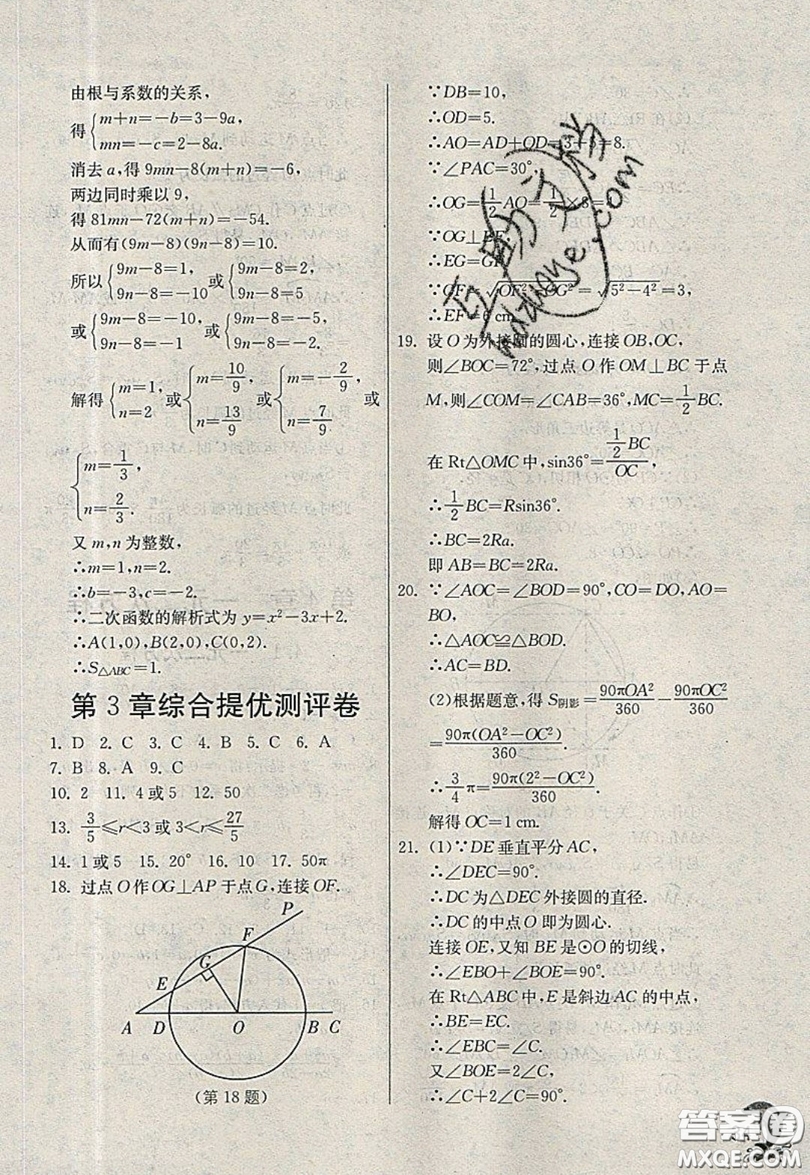 由根与系数的关系，
得{m+n=-b=3-9a,
mn=-c=2-8a.
消去a,得9mn-8(m+n)=-6,
两边同时乘以9,
得81mn-72(m+n)=-54.
从而有(9m-8)(9n-8)=10.
所以{9m-8=1, 9n-8=10 或{9m-8=2, 9n-8=5
或{9m-8=-10, 9n-8=-1 或{9m-8=-5, 9n-8=-2.
解得{m=1, n=2 或{m=10/9, n=13/9 或{m=-2/9, n=7/9 或
{m=1/3, n=2/3.
又m,n为整数,
∴m=1,n=2.
∴b=-3,c=2.
∴二次函数的解析式为y=x²-3x+2.
∴A(1,0),B(2,0),C(0,2).
∴S△ABC=1.
第3章综合提优测评卷
1. D 2. C 3. C 4. B 5. C 6. A
7. B 8. A 9. C
10. 2 11. 4或5 12. 50
13. 3/5≤r<3或3<r≤27/5
14. 1或5 15. 20° 16. 10 17. 50π
18. 过点O作OG⊥AP于点G,连接OF.
P
F
G
E
A D O B C
(第18题)
∵DB=10,
∴OD=5.
∴AO=AD+OD=3+5=8.
∵∠PAC=30°,
∴OG=1/2AO=1/2×8=4.
∵OG⊥EF,
∴EG=GF.
∵GF=√OF²-OG²=√5²-4²=3,
∴EF=6 cm.
19. 设O为外接圆的圆心,连接OB,OC,
则∠BOC=72°,过点O作OM⊥BC于点
M,则∠COM=∠CAB=36°,MC=1/2BC.
在Rt△OMC中,sin36°=1/2BC/OC,
∴1/2BC=Rsin36°.
∴BC=2Ra.
即AB=BC=2Ra.
20. ∵∠AOC=∠BOD=90°,CO=DO,AO=
BO,
∴△AOC≌△BOD.
∴AC=BD.
(2)根据题意,得S阴影=90πOA²/360-90πOC²/360
=90π(OA²-OC²)/360.
∴3/4π=90π(2²-OC²)/360.
解得OC=1 cm.
21. (1)∵DE垂直平分AC,
∴∠DEC=90°.
∴DC为△DEC外接圆的直径.
∴DC的中点O即为圆心.
连接OE,又知BE是⊙O的切线,
∴∠EBO+∠BOE=90°.
在Rt△ABC中,E是斜边AC的中点,
∴BE=EC.
∴∠EBC=∠C.
又∠BOE=2∠C,
∴∠C+2∠C=90°.
互助文档
hdzuoye.com
答案圈
MXQE.COM